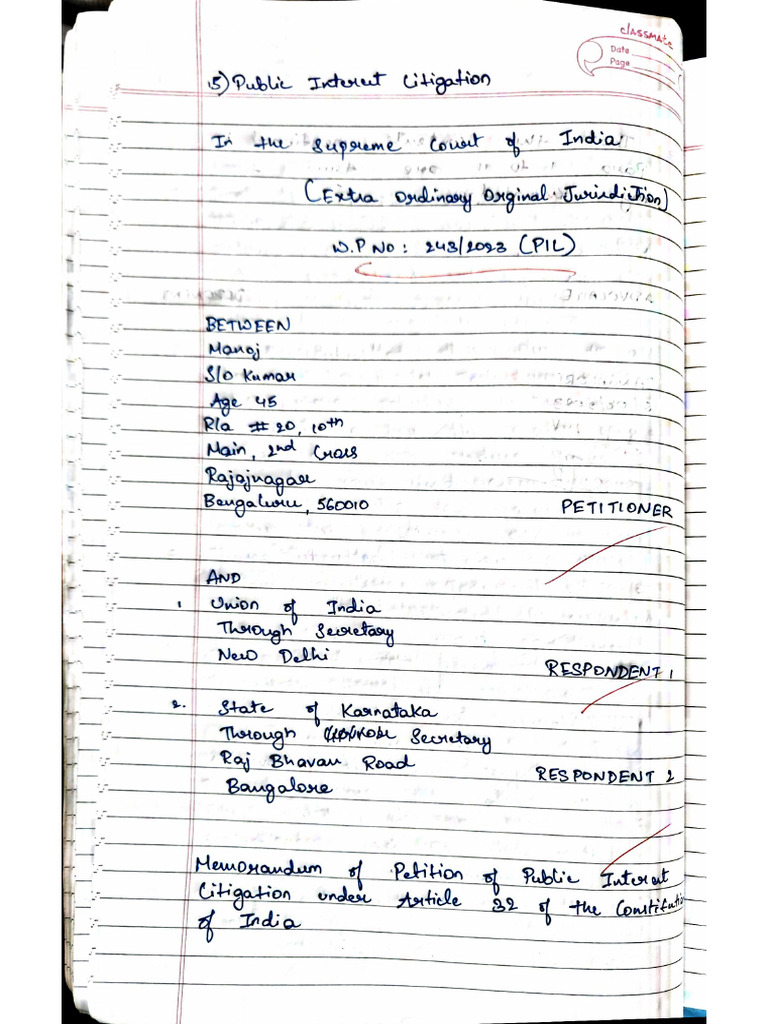 classmate
Date
Page
5) Public Interest Litigation
In the Supreme Court of India
(Extra Ordinary Orginal Jurisdiction)
W.P No: 243/2023 (PIL)
BETWEEN
Manoj
S/o Kumar
Age 45
R/a # 20, 10th
Main, 2nd Cross
Rajajnagar
Bengaluru, 560010 PETITIONER
AND
1. Union of India
Through Secretary
New Delhi RESPONDENT 1
2. State of Karnataka
Through Secretary
Raj Bhavan Road
Bangalore RESPONDENT 2
Memorandum of Petition of Public Interest
Litigation under Article 32 of the Constitution
of India